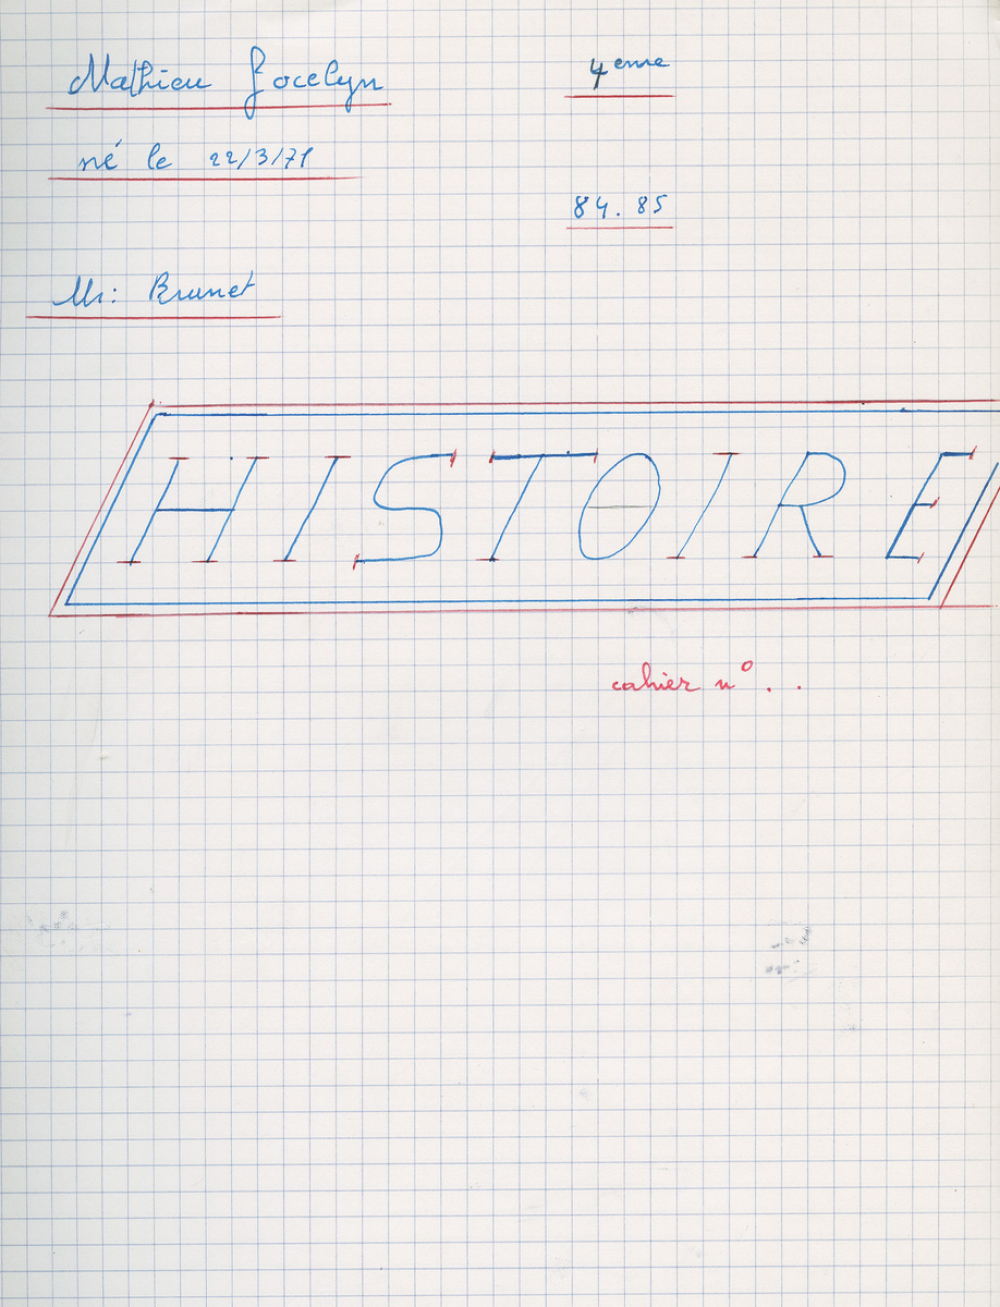 Mathieu Jocelyn
4eme
né le 22/3/71
84.85
Mr: Brunet
HISTOIRE
cahier n° . .